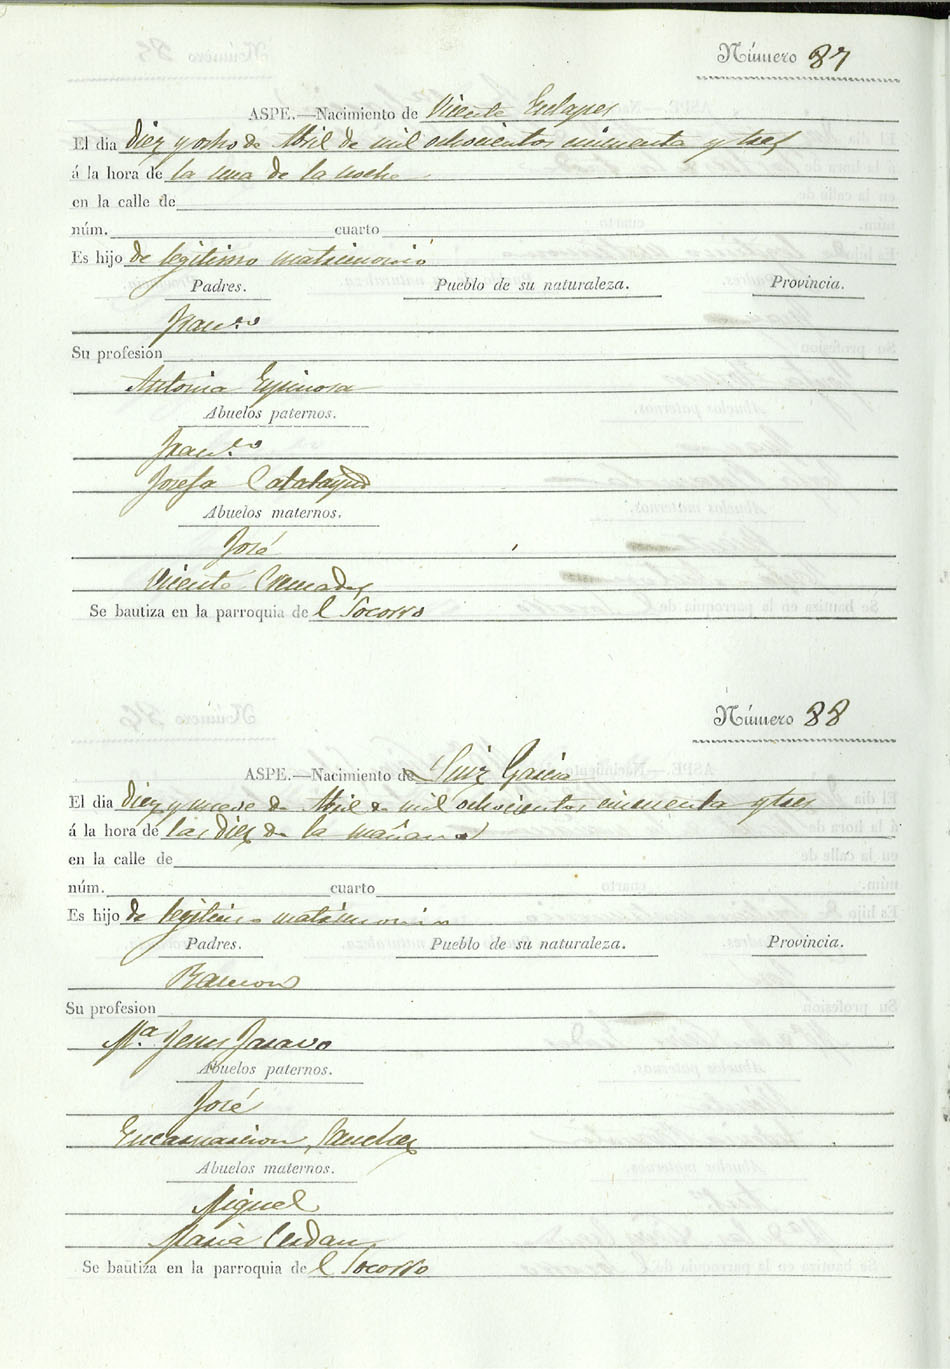 Número 87
ASPE.—Nacimiento de Vicente Eulapes
El dia diez y ocho de Abril de mil ochocientos cincuenta y tres
á la hora de la una de la noche
en la calle de
núm. cuarto
Es hijo de legitimo matrimonio
Padres. Pueblo de su naturaleza. Provincia.
Franco
Su profesion
Antonia Espinosa
Abuelos paternos.
Franco
Josefa Calatayud
Abuelos maternos.
José
Vicenta
Se bautiza en la parroquia de l Socorro
Número 88
ASPE.—Nacimiento de Luiz Garcia
El dia diez y nueve de Abril de mil ochocientos cincuenta y tres
á la hora de las diez de la mañana
en la calle de
núm. cuarto
Es hijo de legitimo matrimonio
Padres. Pueblo de su naturaleza. Provincia.
Ramon
Su profesion
Mª Jesus
Abuelos paternos.
José
Encarnacion Sanchez
Abuelos maternos.
Miguel
Maria Cerdan
Se bautiza en la parroquia de l Socorro